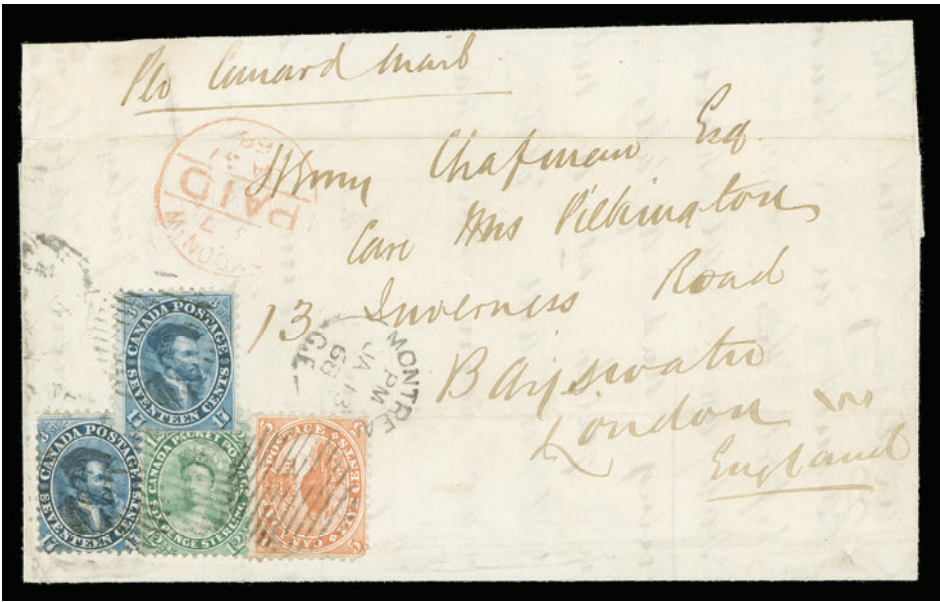 Per Cunard Mail
PAID
LONDON
Henry Chapman Esq.
Care Mrs Pilkington
13 Inverness Road
Bayswater
London W
England
MONTREAL
PM
JA 13
68
C.E
CANADA POSTAGE
SEVENTEEN CENTS
17
CANADA POSTAGE
SEVENTEEN CENTS
CANADA PACKET POSTAGE
SIX PENCE STERLING
12½
POSTAGE
5
CENTS